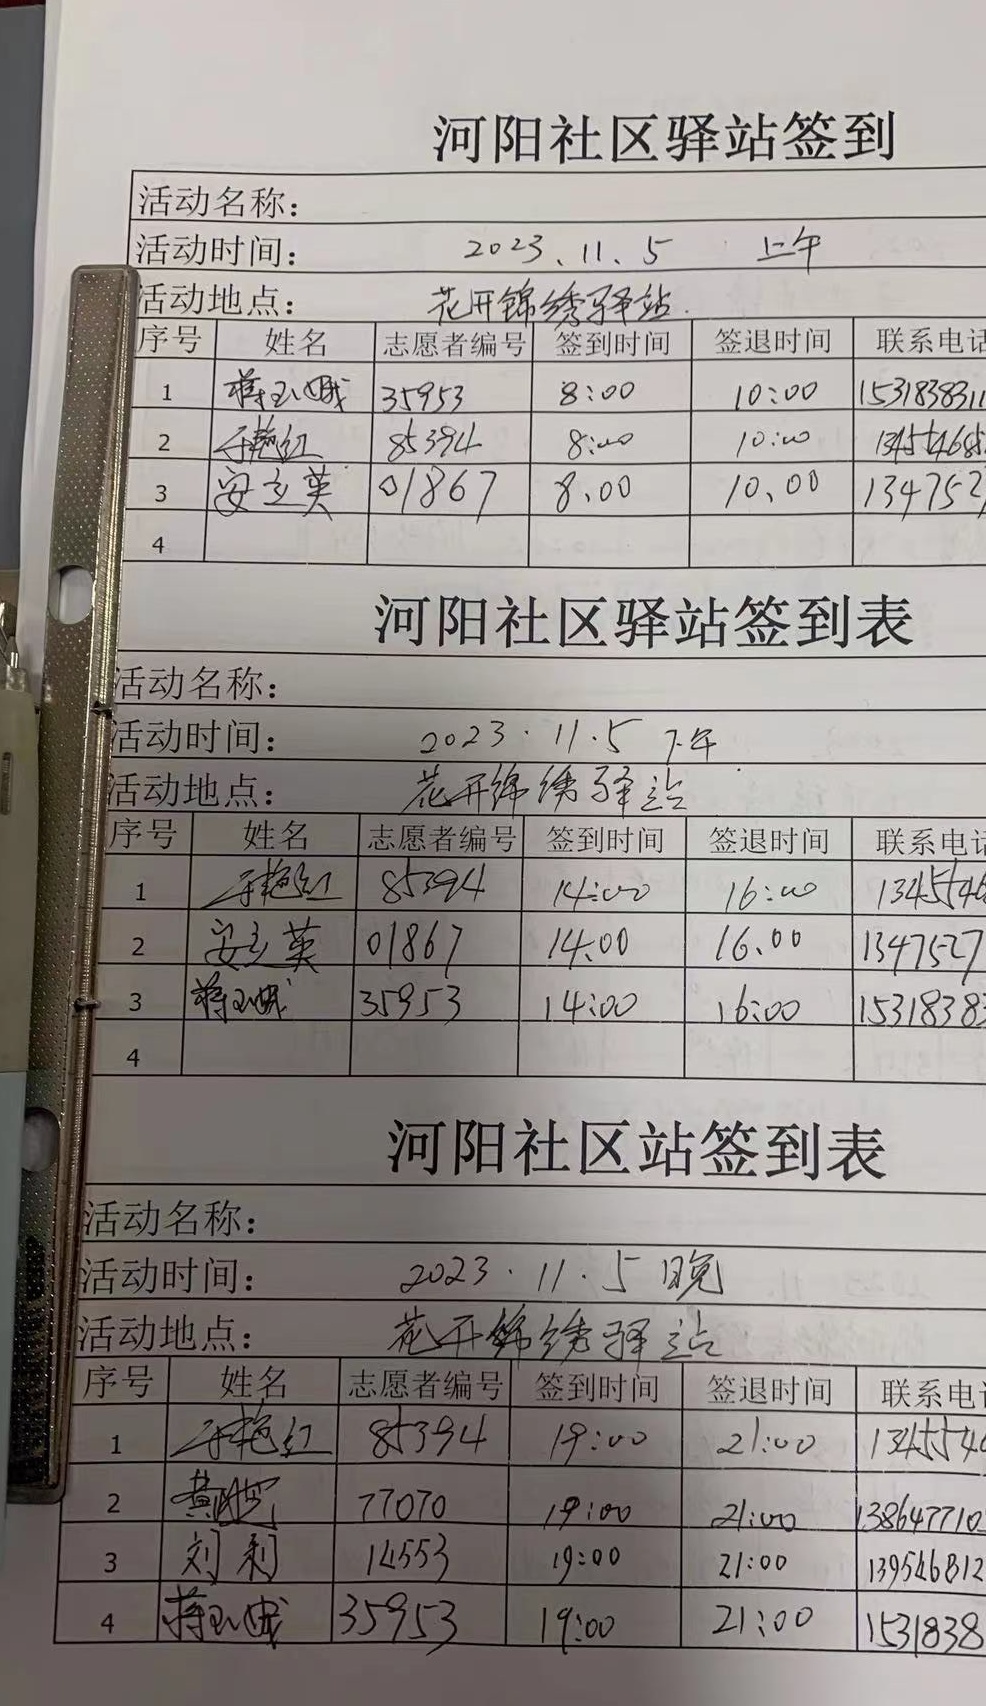 河阳社区驿站签到
活动名称：
活动时间： 2023、11、5 上午
活动地点： 花开锦绣驿站
序号 姓名 志愿者编号 签到时间 签退时间 联系电话
1 蒋玉娥 35953 8:00 10:00 1531838311
2 于艳红 85394 8:00 10:00 134554685
3 安立英 01867 8.00 10.00 1347527
4
河阳社区驿站签到表
活动名称：
活动时间： 2023.11.5 下午
活动地点： 花开锦绣驿站
序号 姓名 志愿者编号 签到时间 签退时间 联系电话
1 于艳红 85394 14:00 16:00 1345546
2 安立英 01867 14.00 16.00 1347527
3 蒋玉娥 35953 14:00 16:00 15318383
4
河阳社区站签到表
活动名称：
活动时间： 2023.11.5 晚
活动地点： 花开锦绣驿站
序号 姓名 志愿者编号 签到时间 签退时间 联系电话
1 于艳红 85394 19:00 21:00 1345546
2 77070 19:00 21:00 138647710
3 刘利 14553 19:00 21:00 139546812
4 蒋玉娥 35953 19:00 21:00 1531838